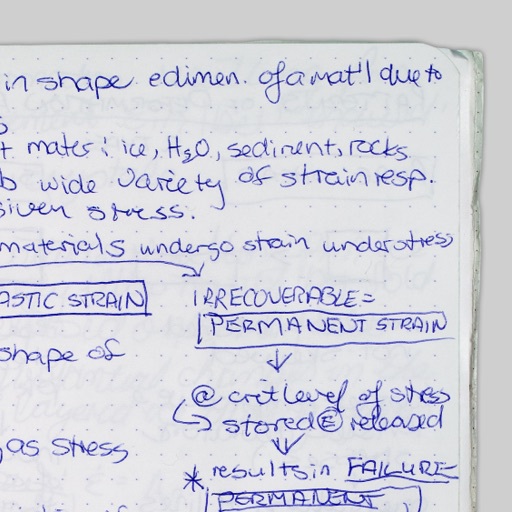 in shape & dimen. of a mat'l due to
mater: ice, H2O, sediment, rocks
wide variety of strain resp.
given stress.
materials undergo strain under stress
ASTIC STRAIN
IRRECOVERABLE =
PERMANENT STRAIN
shape of
@ crit level of stress
stored E released
as stress
* results in FAILURE
PERMANENT